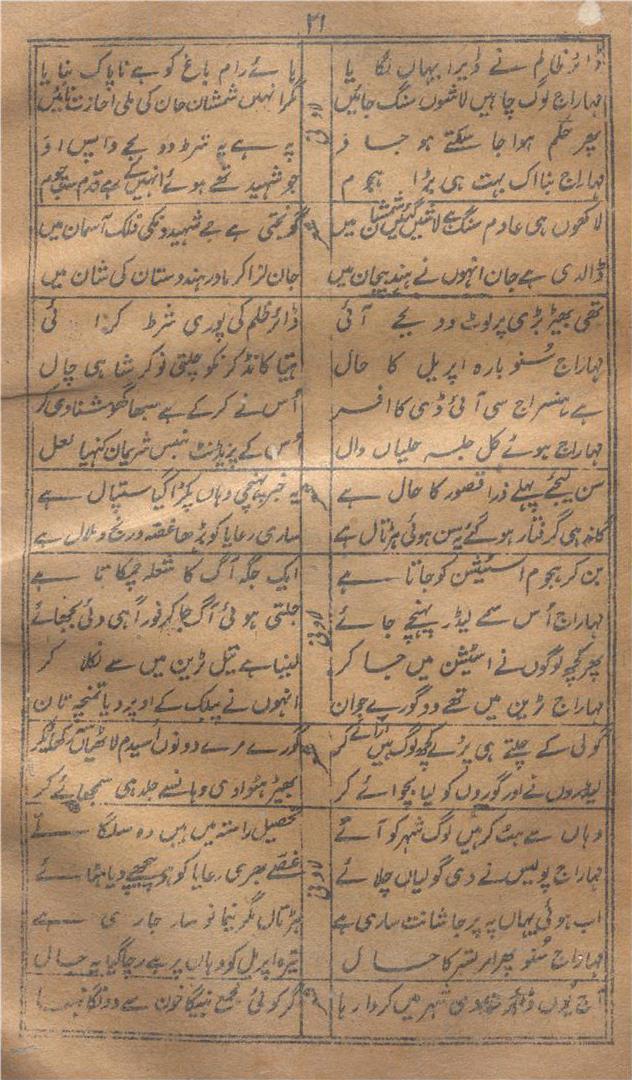 ۲۱
ڈائر ظالم نے ڈیرا یہاں لگا یا ہائے رام باغ کو ہے ناپاک بنا یا
مہاراج لوگ چاہیں لاشوں سنگ جائیں مگر انہیں شمشان جان کی ملی اجازت نائیں
لاونی
پھر حکم ہوا جا سکتے ہو جا ؤ پہ ہے یہ شرط دو بجے واپس آؤ
مہاراج بنا اک بہت ہی بڑا ہجوم جو شہید تھے ہوئے انہیں کے قدم
لاکھوں ہی عادم سنگ ہے لاشیں گئیں شمشان میں گونجتی ہے جے شہیدو نکی فلک آسمان میں
ڈالدی ہے جان انہوں نے ہند بیجان میں جان لڑا کر مادر ہندوستان کی شان میں
تھی بھیڑ بڑی پر لوٹ دو بجے آئی ڈائر ظلم کی پوری شرط کرا ئی
مہاراج سُنو بارہ اپریل کا حال ہتیا کانڈ کر نکو چلتی نوکر شاہی چال
ہے ہنسراج سی آئی ڈی کا افسر اُس نے کر کے ہے سبھا گھر
مہاراج ہوئے کل جلسہ جلیاں وال اُس کے پریذیڈنٹ شریمان کنہیا لعل
سن لیجئے پہلے ذرا قصور کا حال ہے یہ خبر پہنچی وہاں پکڑا گیا ستپال ہے
گاندھی گرفتار ہو گئے یہ سن ہوئی ہڑتال ہے ساری رعایا کو بڑھا غصہ و رنج و ملال ہے
بن کر ہجوم اسٹیشن کو جاتا ہے ایک جگہ آگ کا شعلہ چمکا تا ہے
لاونی
مہاراج اُس سمے لیڈر پہنچے جائے جلتی ہوئی آگ جا کر فوراً ہی دئی بجھائے
پھر کچھ لوگوں نے اسٹیشن میں جا کر لیا ہے تیل ٹرین میں سے نکلا کر
مہاراج ٹرین میں تھے دو گورے جوان انہوں نے پبلک کے اوپر دیا تمنچہ تان
گولی کے چلتے ہی پڑے کچھ لوگ ہیں کر گورے مرے دونوں اُسیدم لاٹھیاں کھا کر
لیڈروں نے اور گوروں کو لیا بچوائے کر بھیڑ ہٹوادی وہانسے جلد ہی سمجھائے کر
وہاں سے ہٹ کر ہیں لوگ شہر کو آئے تحصیل راستہ میں ہیں دہ سلگا ئے
لاونی
مہاراج پولیس نے دی گولیاں چلائے غصے بھری رعایا کو پیچھے دیا ہٹائے
اب ہوئی یہاں پہ پرجا شانت ساری ہے ہڑتال مگر جاری ہے
مہاراج سُنو پھر امرتسر کا حال تیرہ اپریل کو وہاں پر ہے رچا گیا یہ جال
آج یوں ڈائر شہر میں کر دا رہا گر کوئی مجمع خون سے دونگا